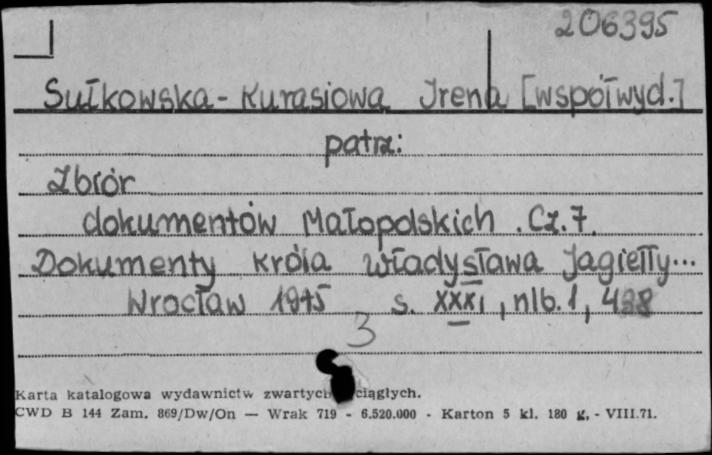 206395
Sułkowska-Kurasiowa Irena [współwyd.]
patrz:
Zbiór
dokumentów Małopolskich. Cz. 7.
Dokumenty króla Władysława Jagiełły...
Wrocław 1975 s. XXXI, nlb. 1, 438
3
Karta katalogowa wydawnictw zwartych ciągłych.
CWD B 144 Zam. 869/Dw/On — Wrak 719 - 6.520.000 - Karton 5 kl. 180 g, - VIII.71.